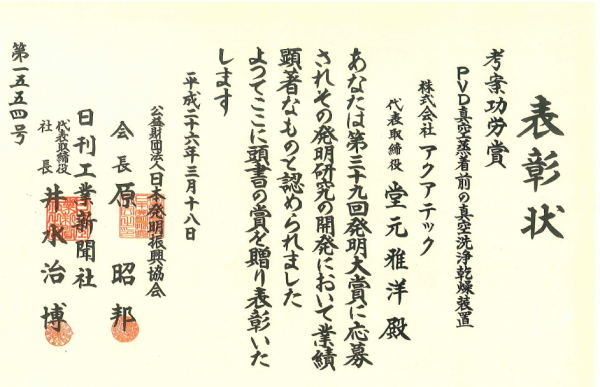 表彰状
考案功労賞
PVD真空蒸着前の真空洗浄乾燥装置
株式会社 アクアテック
代表取締役 堂元雅洋殿
あなたは第三十九回発明大賞に応募
されその発明研究の開発において業績
顕著なものと認められました
よつてここに頭書の賞を贈り表彰いた
します
平成二十六年三月十八日
公益財団法人日本発明振興協会
会長 原 昭邦
日刊工業新聞社
代表取締役
社長 井水治博
第一五五四号